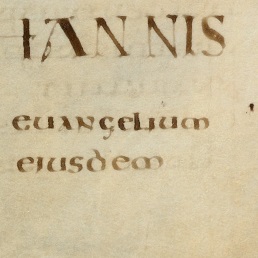 HANNIS
euangelium
eiusdem